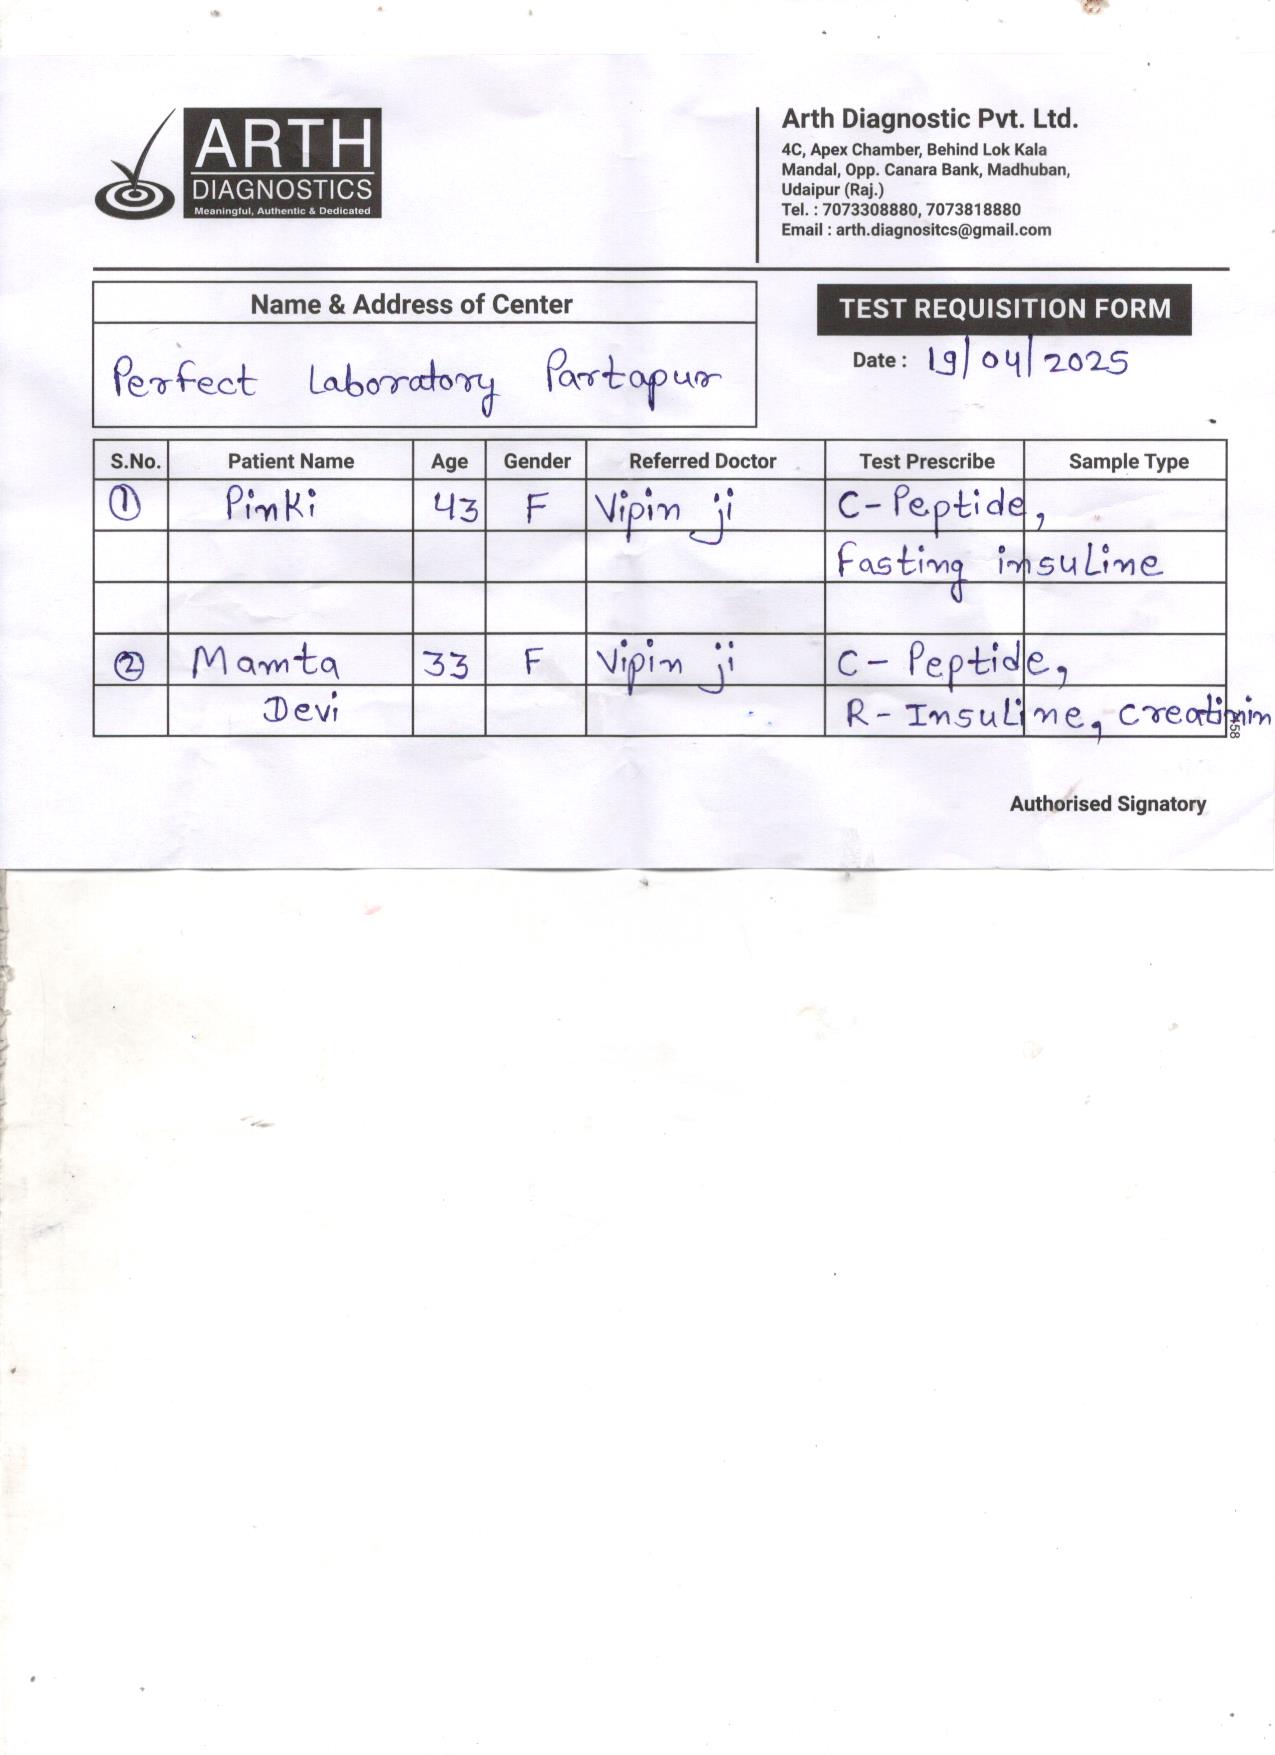 ARTH
DIAGNOSTICS
Meaningful, Authentic & Dedicated
Arth Diagnostic Pvt. Ltd.
4C, Apex Chamber, Behind Lok Kala
Mandal, Opp. Canara Bank, Madhuban,
Udaipur (Raj.)
Tel. : 7073308880, 7073818880
Email : arth.diagnositcs@gmail.com
Name & Address of Center
Perfect Laboratory Partapur
TEST REQUISITION FORM
Date : 19/04/2025
S.No. Patient Name Age Gender Referred Doctor Test Prescribe Sample Type
1 Pinki 43 F Vipin ji C-Peptide,
Fasting insuline
2 Mamta 33 F Vipin ji C- Peptide,
Devi R- Insuline, creatinin
Authorised Signatory